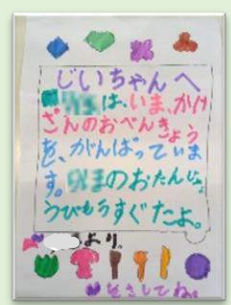 じいちゃんへ
は、いま、かけ
ざんのおべんきょう
を、がんばっていま
す。のおたんじょ
うびもうすぐだよ。
より。
してね。